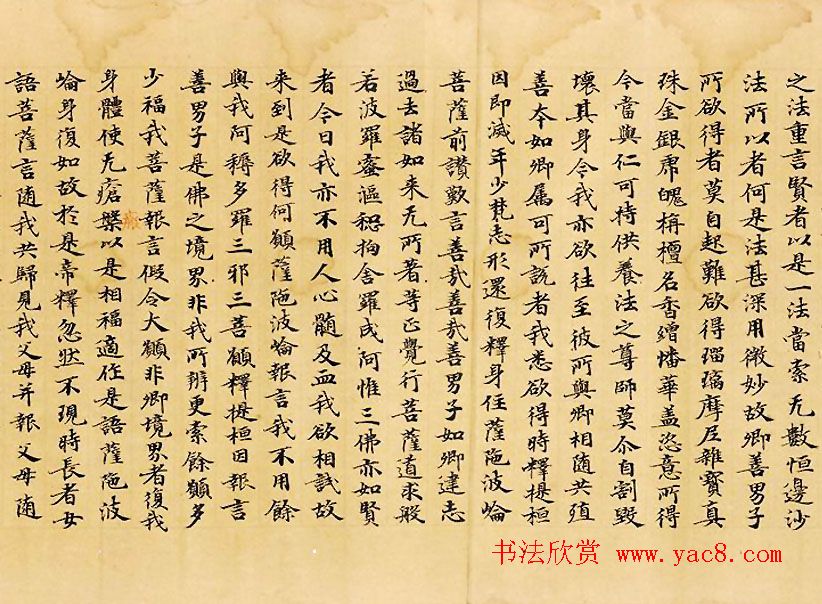 之法重言賢者以是一法當索无數恒邊沙
法所以者何是法甚深用微妙故卿善男子
所欲得者莫自起難欲得瑠璃摩尼雜寳真
珠金銀席魄栴檀名香繒幡華盖恣意所得
今當與仁可持供養法之尊師莫尒自割毀
壞其身今我亦欲往至彼所與卿相随共殖
善夲如卿属可所説者我悉欲得時釋提桓
因即滅年少梵志形還復釋身住薩陁波崘
菩薩前讃歎言善㢤善㢤善男子如卿建志
過去諸如来无所著等正覺行菩薩道求般
若波羅蜜漚惒拘舍羅成阿惟三佛亦如賢
者今日我亦不用人心髓及血我欲相試故
来到是欲得何願薩陁波崘報言我不用餘
與我阿耨多羅三邪三菩願釋提桓因報言
善男子是佛之境界非我所辨更索餘願多
少福我菩薩報言假令大願非卿境界者復我
身體使无瘡槃以是相福適住是語薩陁波
崘身復如故於是帝釋忽然不現時長者女
語菩薩言随我共歸見我父母并報父母随
书法欣赏 www.yac8.com